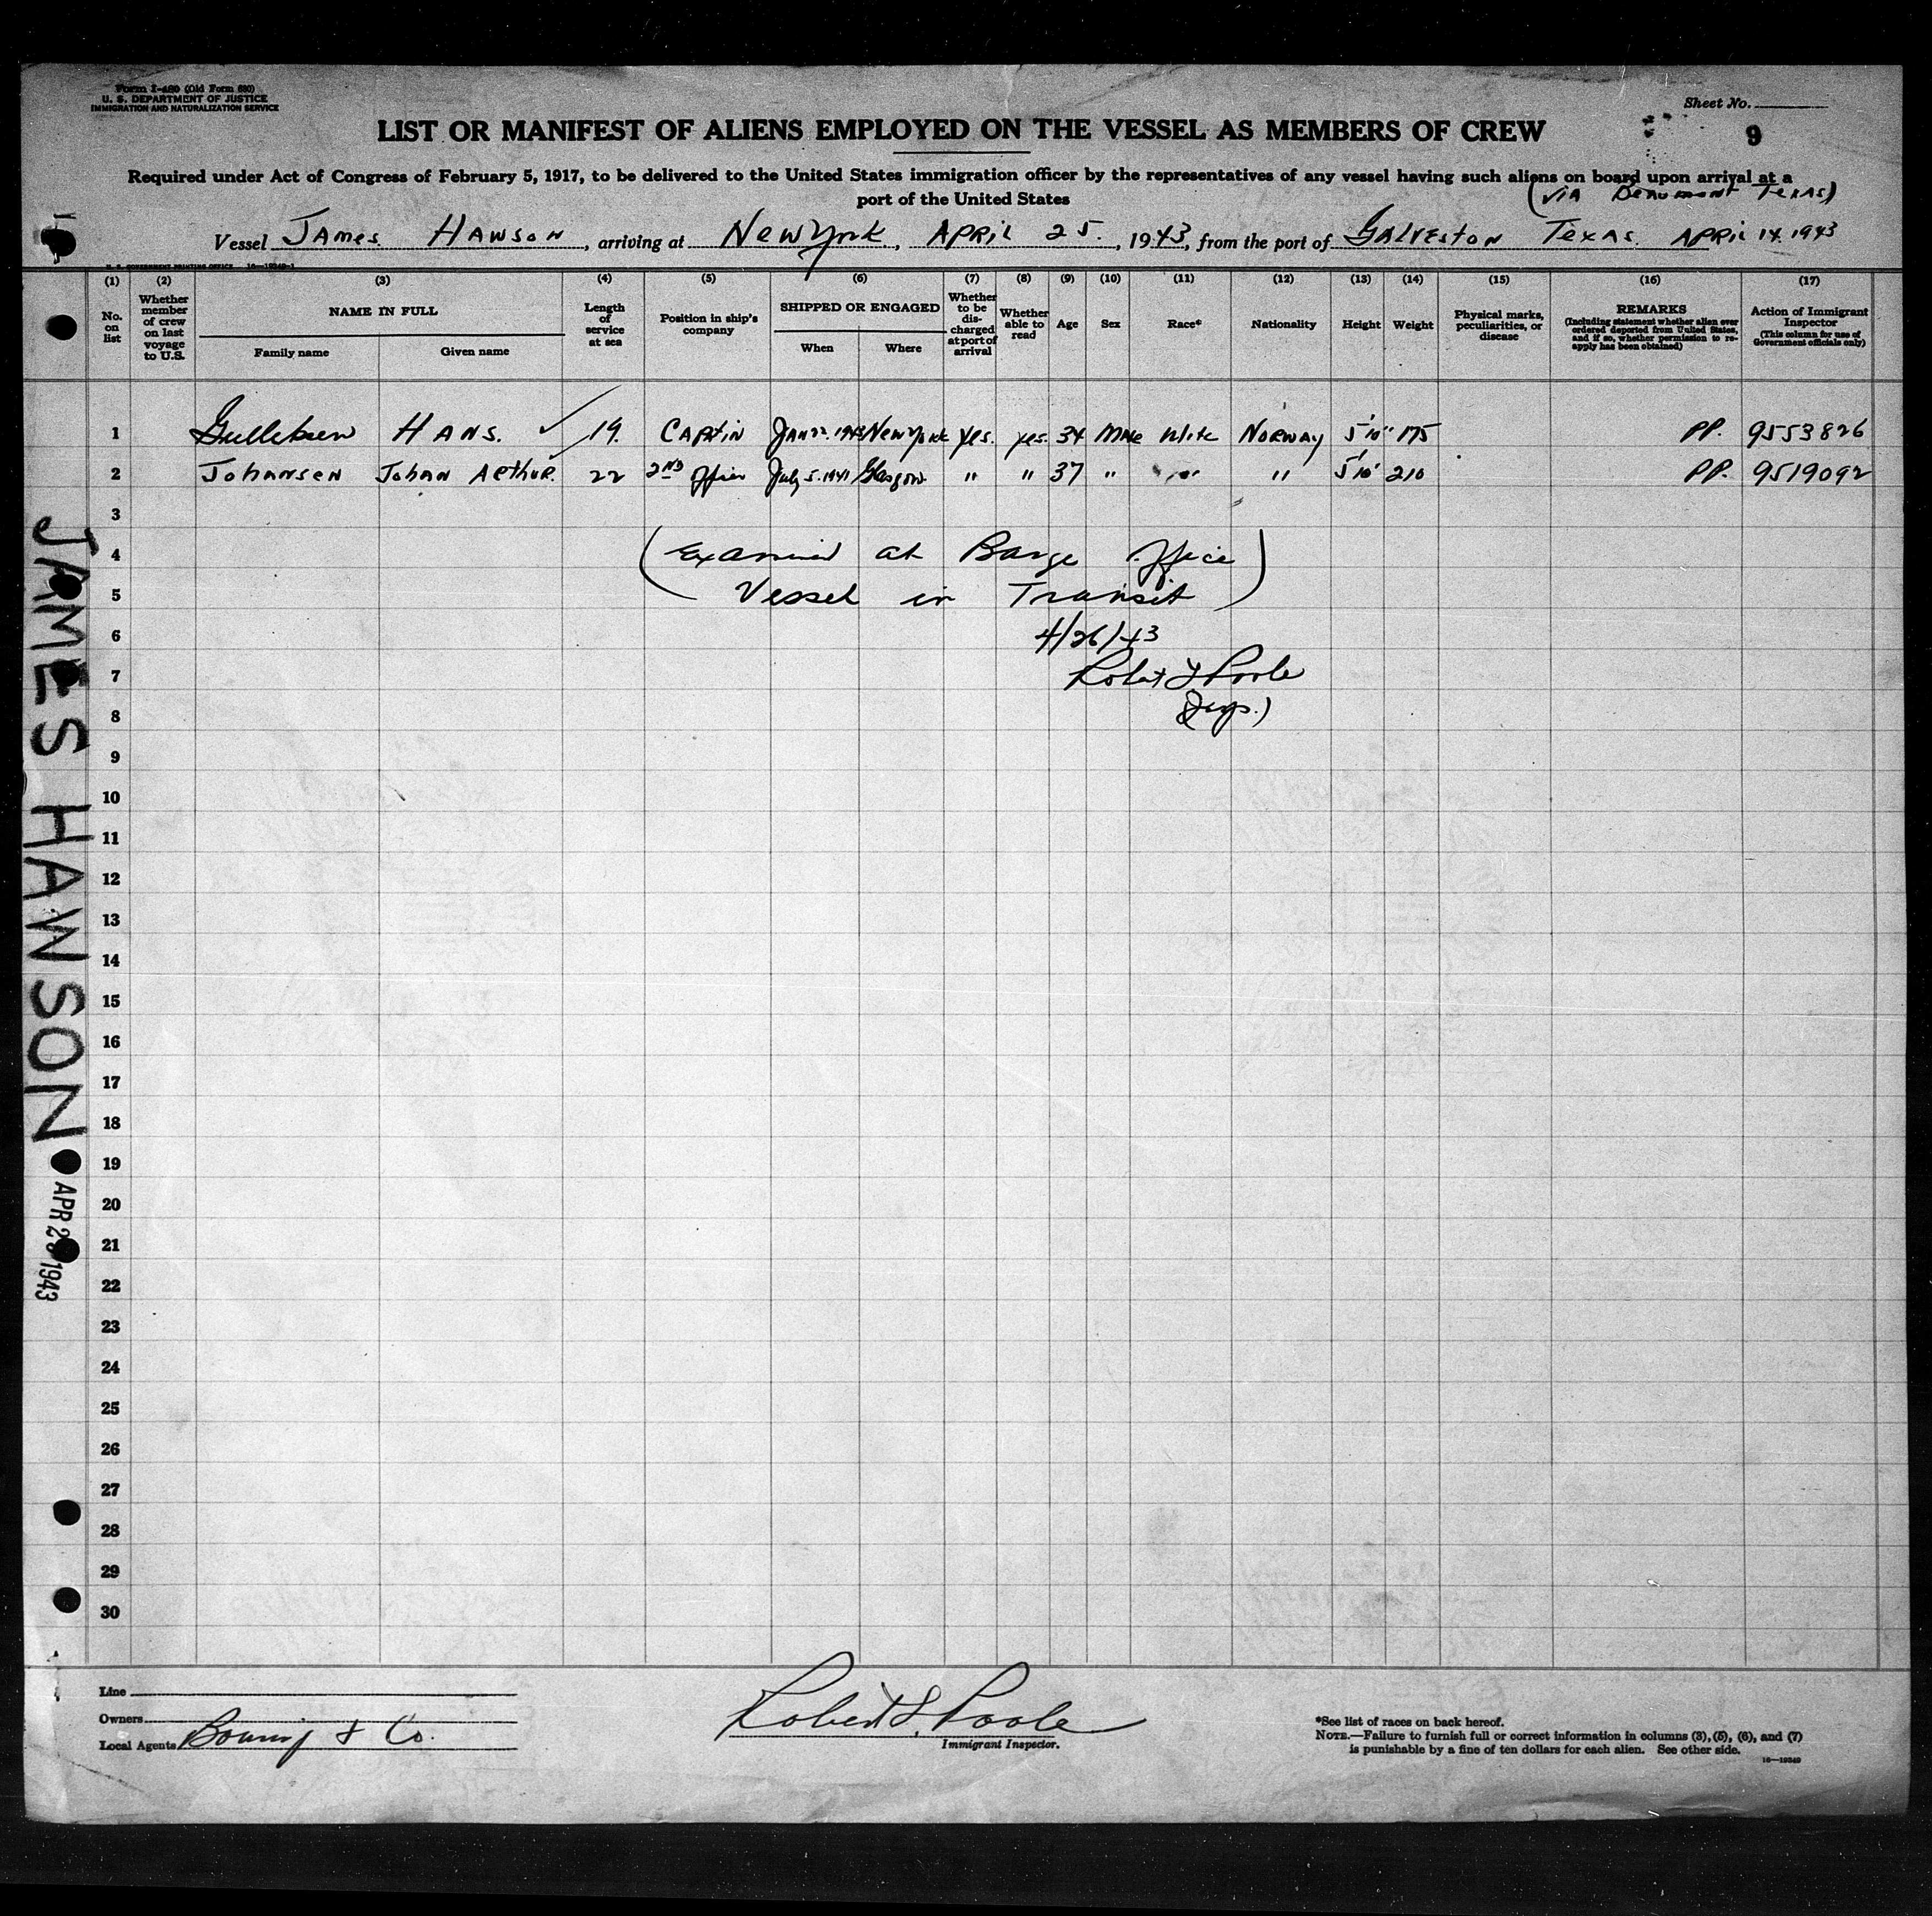 Form I-480 (Old Form 680)
U. S. DEPARTMENT OF JUSTICE
IMMIGRATION AND NATURALIZATION SERVICE
Sheet No.
9
LIST OR MANIFEST OF ALIENS EMPLOYED ON THE VESSEL AS MEMBERS OF CREW
Required under Act of Congress of February 5, 1917, to be delivered to the United States immigration officer by the representatives of any vessel having such aliens on board upon arrival at a
port of the United States
(VIA Beaumont Texas)
Vessel James Hawson, arriving at New York, April 25, 1943, from the port of Galveston Texas. April 14. 1943
U. S. GOVERNMENT PRINTING OFFICE 16—19349-1
(1) (2) (3) (4) (5) (6) (7) (8) (9) (10) (11) (12) (13) (14) (15) (16) (17)
No. on list
Whether member of crew on last voyage to U.S.
NAME IN FULL
Family name
Given name
Length of service at sea
Position in ship's company
SHIPPED OR ENGAGED
When
Where
Whether to be discharged at port of arrival
Whether able to read
Age
Sex
Race*
Nationality
Height
Weight
Physical marks, peculiarities, or disease
REMARKS
(Including statement whether alien ever ordered deported from United States, and if so, whether permission to reapply has been obtained)
Action of Immigrant Inspector
(This column for use of Government officials only)
1 Hans. 19. Captin Jan 22. 1943 New York yes. yes. 34 Male White Norway 5'10" 175 PP. 9553826
2 Johansen Johan Arthur. 22 2nd Officer July 5. 1941 Glasgow. " " 37 " " " 5'10' 210 PP. 9519092
3
4 (Examined at Barge Office
5 Vessel in Transit)
6 4/26/43
7 Robert L Poole
8 (Insp.)
9
10
11
12
13
14
15
16
17
18
19
20
21
22
23
24
25
26
27
28
29
30
JAMES HAWSON
APR 26 1943
Line
Owners
Local Agents & Co.
Robert L. Poole
Immigrant Inspector.
*See list of races on back hereof.
NOTE.—Failure to furnish full or correct information in columns (3), (5), (6), and (7)
is punishable by a fine of ten dollars for each alien. See other side.
16—19349